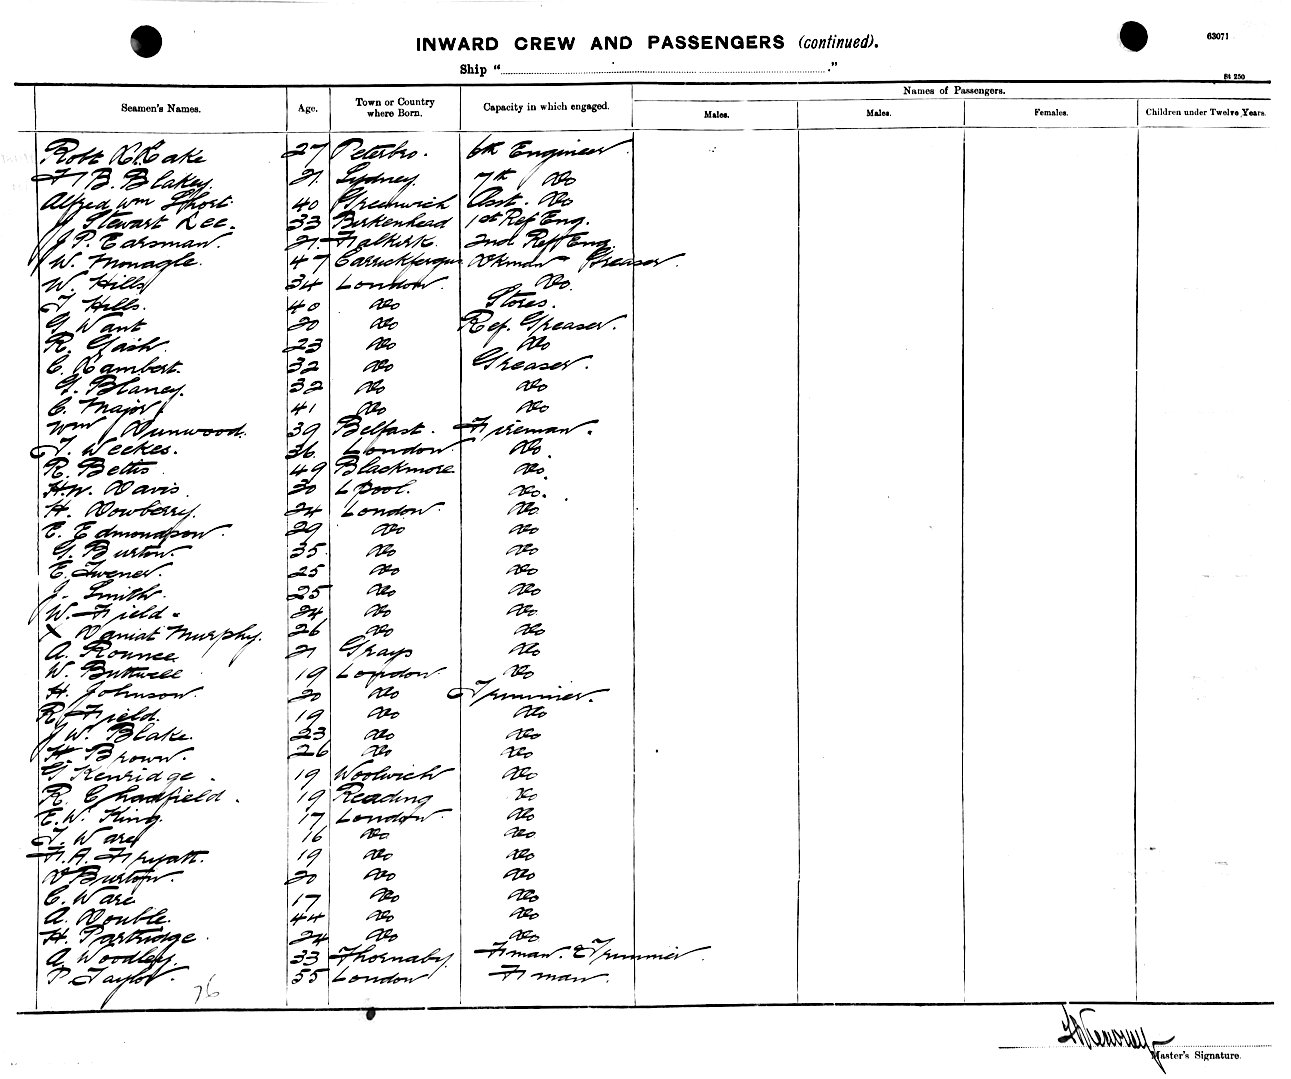 INWARD CREW AND PASSENGERS (continued).
63071
Ship " "
St 250
Seamen's Names. Age. Town or Country where Born. Capacity in which engaged. Names of Passengers.
Males. Males. Females. Children under Twelve Years.
Robt 27 Peterbro. 6th Engineer
F B. Blakey. 21. Sydney. 7th Do
Alfred Wm Short 40 Greenwich Asst. Do
J Stewart Lee. 33 Birkenhead 1st Ref Eng.
J P. Earsman. 21. Falkirk. 2nd Ref Eng.
W. Monagle. 47 Carrickfergus Dkman Greaser.
W. Hills 34 London. Do.
T Hills. 40 Do Stores.
G Want 20 Do Ref. Greaser.
R. Gash. 23 Do Do
C. Lambert. 32 Do Greaser.
G. Blaney. 32 Do Do
C. Major. 41 Do Do
Wm Dunwood. 39 Belfast. Fireman.
T. Weekes. 36. London Do.
R. Bettis 49 Blackmore Do.
H.W. Davis. 30 L'pool. Do.
H. Dowberry. 24 London Do.
E. Edmondson. 29 Do Do
G. Burton. 35 Do Do
E. 25 Do Do
J. Smith. 25 Do Do
W. Field. 24 Do Do
X Daniel Murphy. 26 Do Do
A. Rounce. 21 Grays Do
W. Buttwell 19 London. Do
H. Johnson. 20 Do Trimmer.
R. Field. 19 Do Do
J W. Blake. 23 Do Do
H. Brown. 26 Do Do
G Kenridge. 19 Woolwich Do
R. Chadfield. 19 Reading Do
E. W. King. 17 London. Do
T. Ware 16 Do. Do
F. A. Fryatt. 19 Do Do
Burton. 20 Do Do
C. Ware 17 Do Do
A. Double. 44 Do Do
H. Partridge. 24 Do Do
A Woodley. 33 Thornaby. Fman. & Trimmer.
P Taylor. 55 London Fman.
76
Master's Signature.